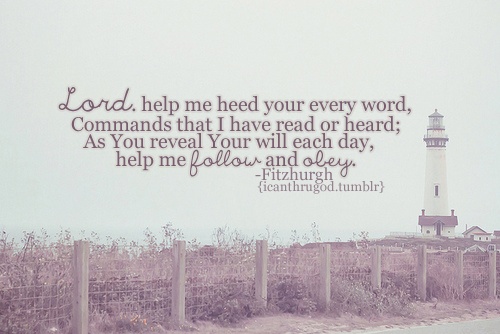 Lord. help me heed your every word,
Commands that I have read or heard;
As You reveal Your will each day,
help me follow and obey.
-Fitzhurgh
{icanthrugod.tumblr}